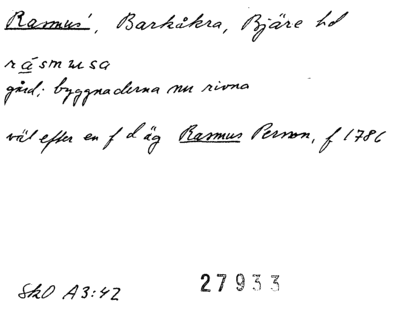 Rasmus', Barkåkra, Bjäre hd
rásmusa
gård; byggnaderna nu rivna
väl efter en f d äg Rasmus Person, f 1786
SkO A3:42
27933